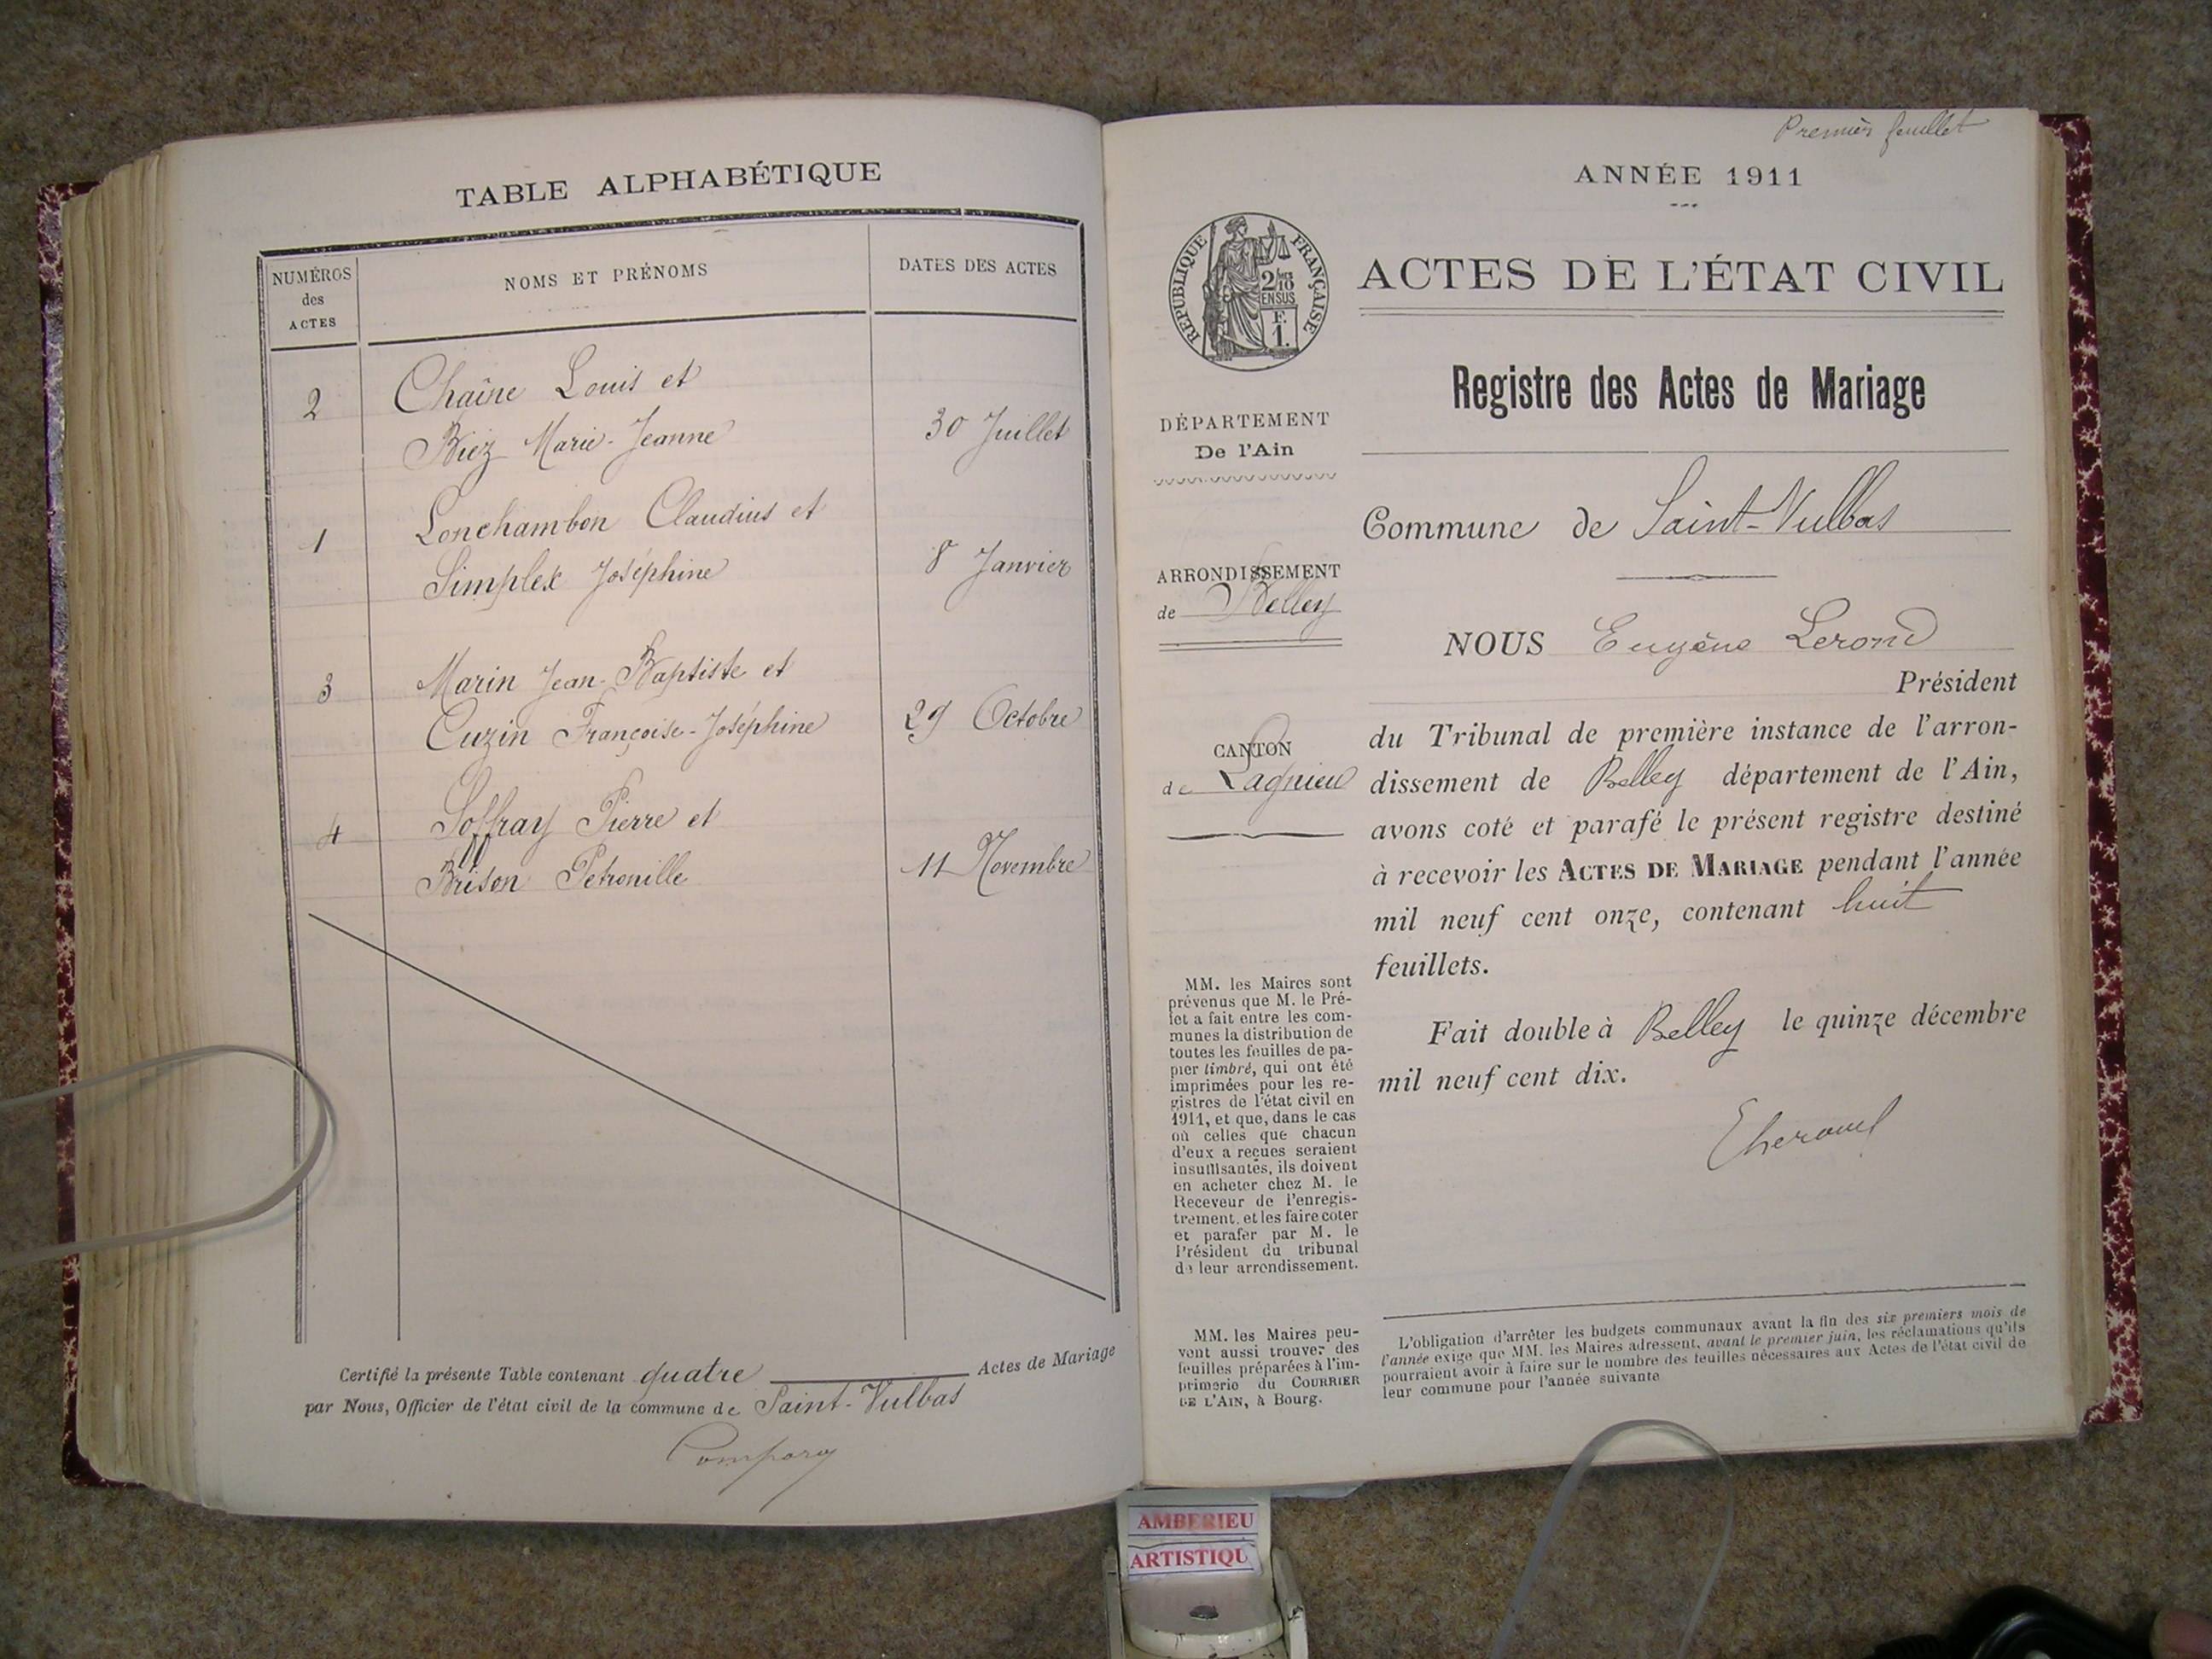 TABLE ALPHABÉTIQUE
NUMÉROS
des
ACTES
NOMS ET PRÉNOMS
DATES DES ACTES
2
Chaîne Louis et
Biez Marie-Jeanne
30 Juillet
1
Lonchambon Claudius et
Simplex Joséphine
8 Janvier
3
Marin Jean-Baptiste et
Cuzin Françoise-Joséphine
29 Octobre
4
Soffray Pierre et
Brison Petronille
11 Novembre
Certifié la présente Table contenant quatre Actes de Mariage
par Nous, Officier de l'état civil de la commune de Saint-Vulbas
Premier feuillet
ANNÉE 1911
RÉPUBLIQUE FRANÇAISE
2/10
EN SUS
F.
1.
ACTES DE L'ÉTAT CIVIL
Registre des Actes de Mariage
DÉPARTEMENT
De l'Ain
Commune de Saint-Vulbas
ARRONDISSEMENT
de Belley
NOUS Eugène
Président
CANTON
de Lagnieu
du Tribunal de première instance de l'arron-
dissement de Belley département de l'Ain,
avons coté et parafé le présent registre destiné
à recevoir les ACTES DE MARIAGE pendant l'année
mil neuf cent onze, contenant huit
feuillets.
Fait double à Belley le quinze décembre
mil neuf cent dix.
MM. les Maires sont
prévenus que M. le Pré-
fet a fait entre les com-
munes la distribution de
toutes les feuilles de pa-
pier timbré, qui ont été
imprimées pour les re-
gistres de l'état civil en
1911, et que, dans le cas
où celles que chacun
d'eux a reçues seraient
insuffisantes, ils doivent
en acheter chez M. le
Receveur de l'enregis-
trement, et les faire coter
et parafer par M. le
Président du tribunal
de leur arrondissement.
MM. les Maires peu-
vent aussi trouver des
feuilles préparées à l'im-
primerie du COURRIER
DE L'AIN, à Bourg.
L'obligation d'arrêter les budgets communaux avant la fin des six premiers mois de
l'année exige que MM. les Maires adressent, avant le premier juin, les réclamations qu'ils
pourraient avoir à faire sur le nombre des feuilles nécessaires aux Actes de l'état civil de
leur commune pour l'année suivante
AMBERIEU
ARTISTIQU